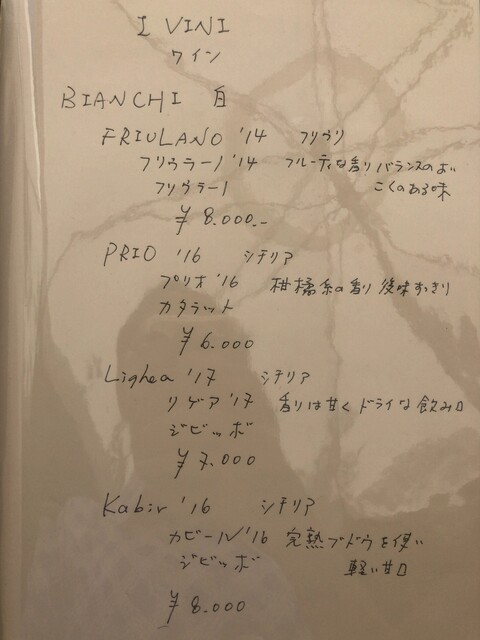 I VINI
ワイン
BIANCHI 白
FRIULANO '14 フリウリ
フリウラーノ'14 フルーティな香り バランスのよい
フリウラーノ こくのある味
¥8.000.-
PRIO '16 シチリア
プリオ'16 柑橘系の香り 後味すっきり
カタラット
¥6.000
Lighea '17 シチリア
リゲア'17 香りは甘く ドライな飲み口
ジビッボ
¥7.000
Kabir '16 シチリア
カビール'16 完熟ブドウを使い
ジビッボ 軽い甘口
¥8.000